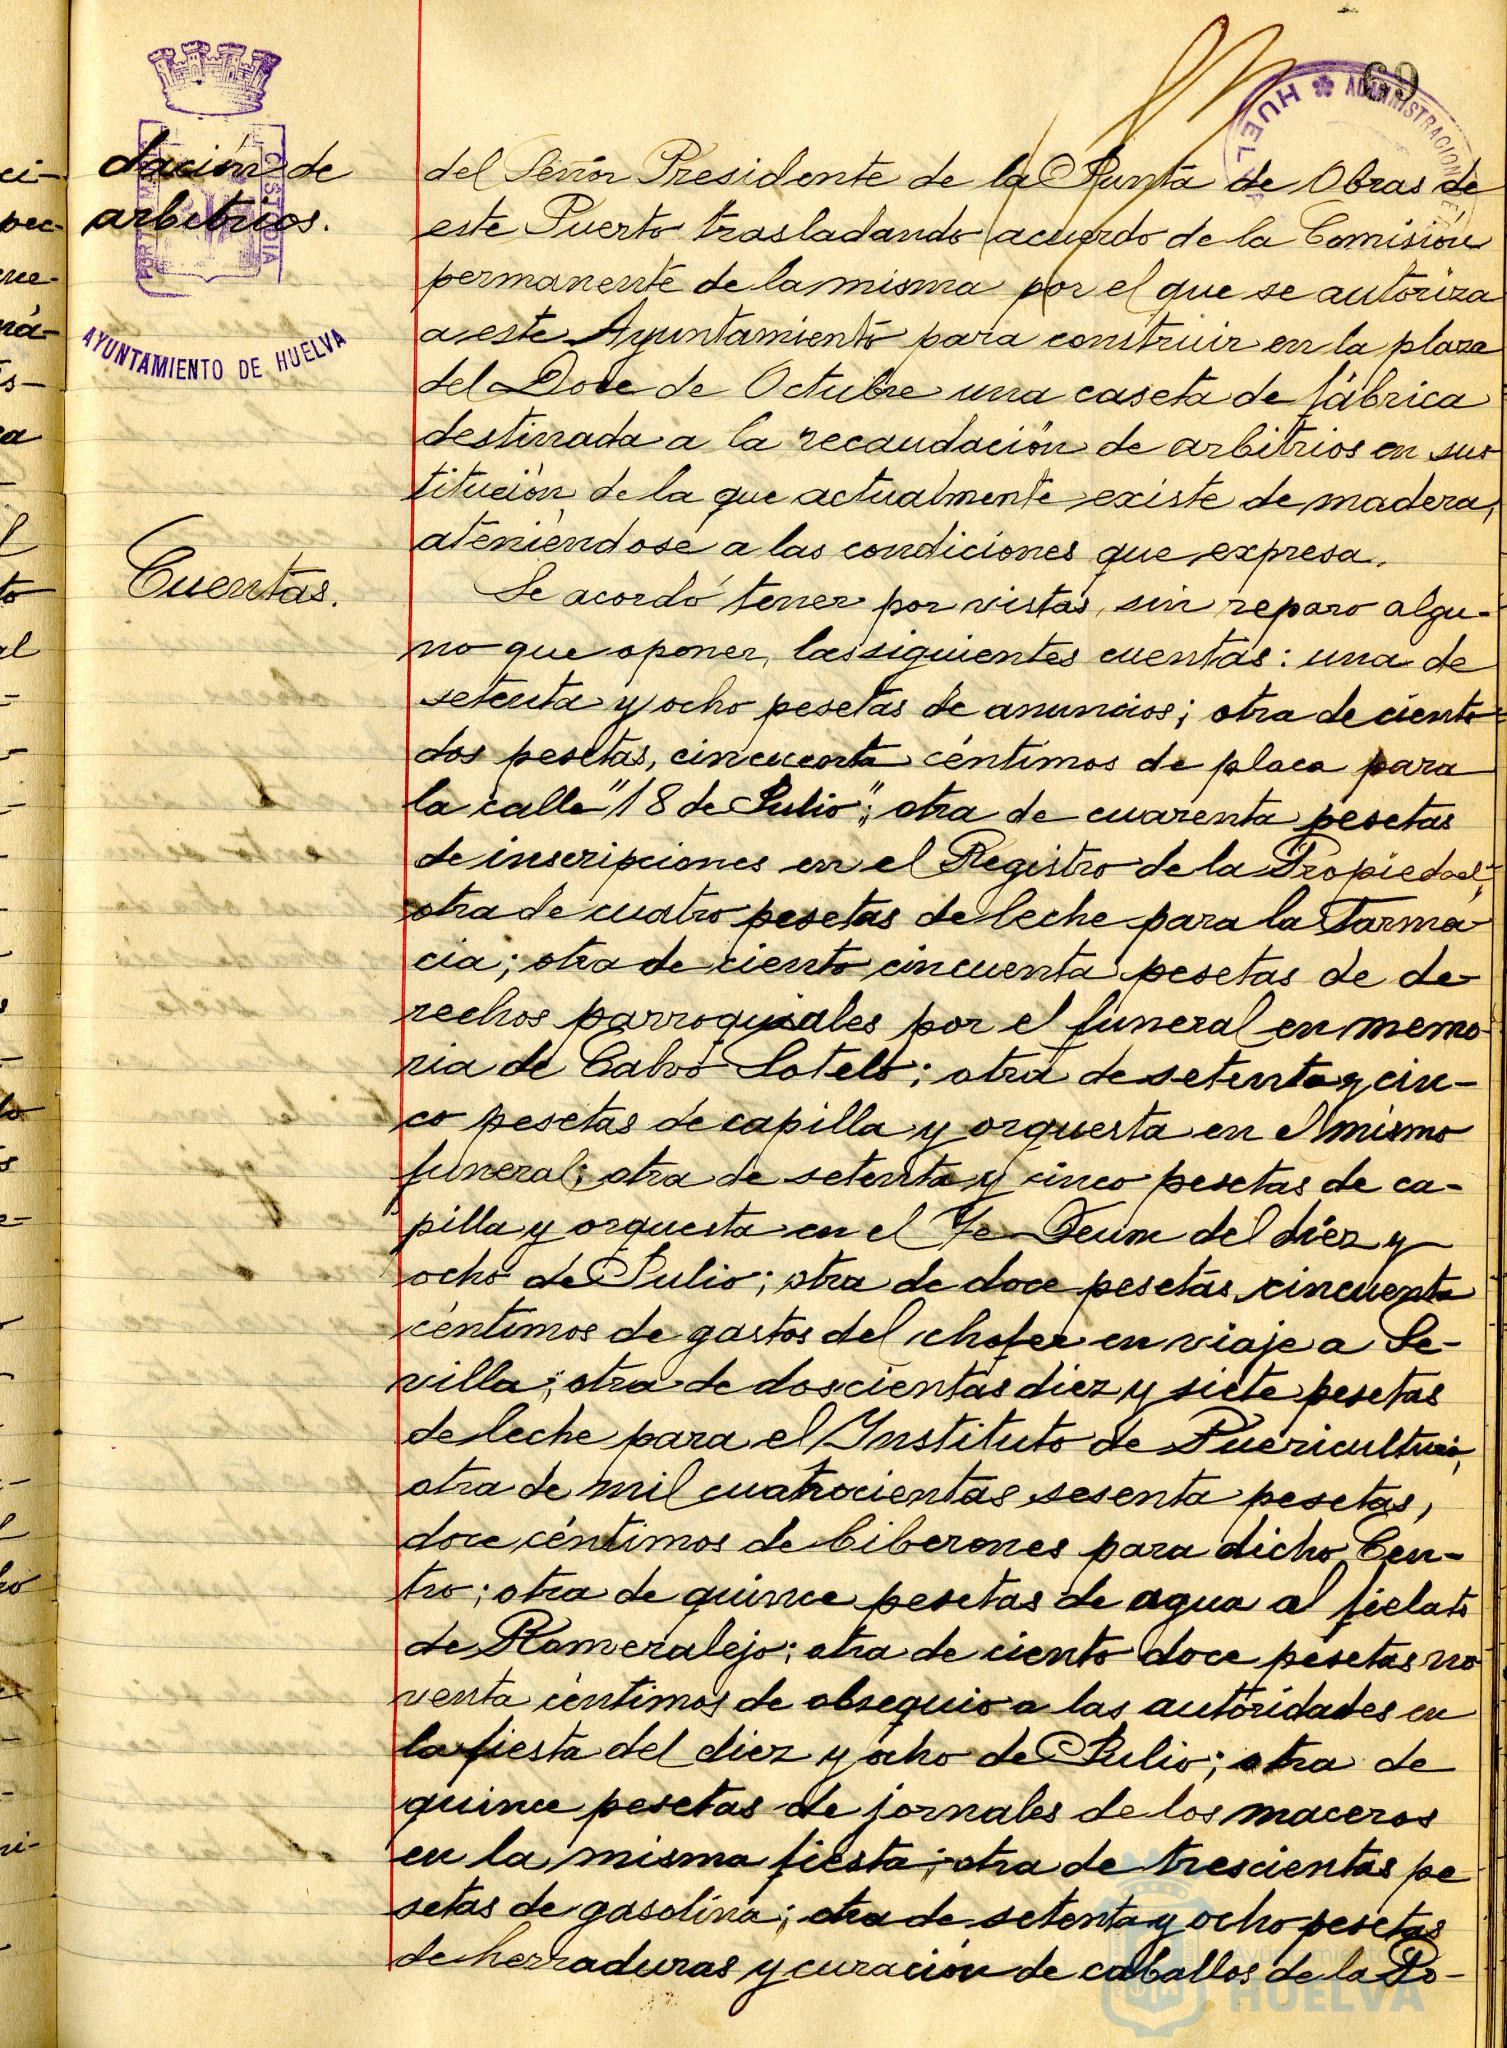 69
HUELVA ADMINISTRACION DE
PORTA MARIS CUSTODIA
AYUNTAMIENTO DE HUELVA
dación de
arbitrios.
del Señor Presidente de la Junta de Obras de
este Puerto trasladando acuerdo de la Comisión
permanente de la misma por el que se autoriza
a este Ayuntamiento para construir en la plaza
del Doce de Octubre una caseta de fábrica
destinada a la recaudación de arbitrios en sus
titución de la que actualmente existe de madera,
ateniéndose a las condiciones que expresa.
Cuentas.
Se acordó tener por vistas, sin reparo algu-
no que oponer, las siguientes cuentas: una de
setenta y ocho pesetas de anuncios; otra de ciento
dos pesetas, cincuenta céntimos de placa para
la calle "18 de Julio"; otra de cuarenta pesetas
de inscripciones en el Registro de la Propiedad;
otra de cuatro pesetas de leche para la Farma-
cia; otra de ciento cincuenta pesetas de de-
rechos parroquiales por el funeral en memo
ria de Calvo Sotelo; otra de setenta y cin-
co pesetas de capilla y orquesta en el mismo
funeral; otra de setenta y cinco pesetas de ca-
pilla y orquesta en el Te-Deum del diez y
ocho de Julio; otra de doce pesetas, cincuenta
céntimos de gastos del chofer en viaje a Se-
villa; otra de doscientas diez y siete pesetas
de leche para el Instituto de Puericultura,
otra de mil cuatrocientas sesenta pesetas,
doce céntimos de biberones para dicho Cen-
tro; otra de quince pesetas de agua al fielato
de Romeralejo; otra de ciento doce pesetas no
venta céntimos de obsequio a las autoridades en
la fiesta del diez y ocho de Julio; otra de
quince pesetas de jornales de los maceros
en la misma fiesta; otra de trescientas pe
setas de gasolina; otra de setenta y ocho pesetas
de herraduras y curación de caballos de la Po-
Ayuntamiento
HUELVA